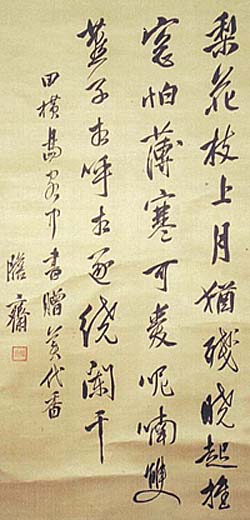 梨花枝上月猶殘曉起推
窓怕薄寒可愛呢喃雙
燕子相呼相逐繞闌干
田横島客中書贈美代香
齋